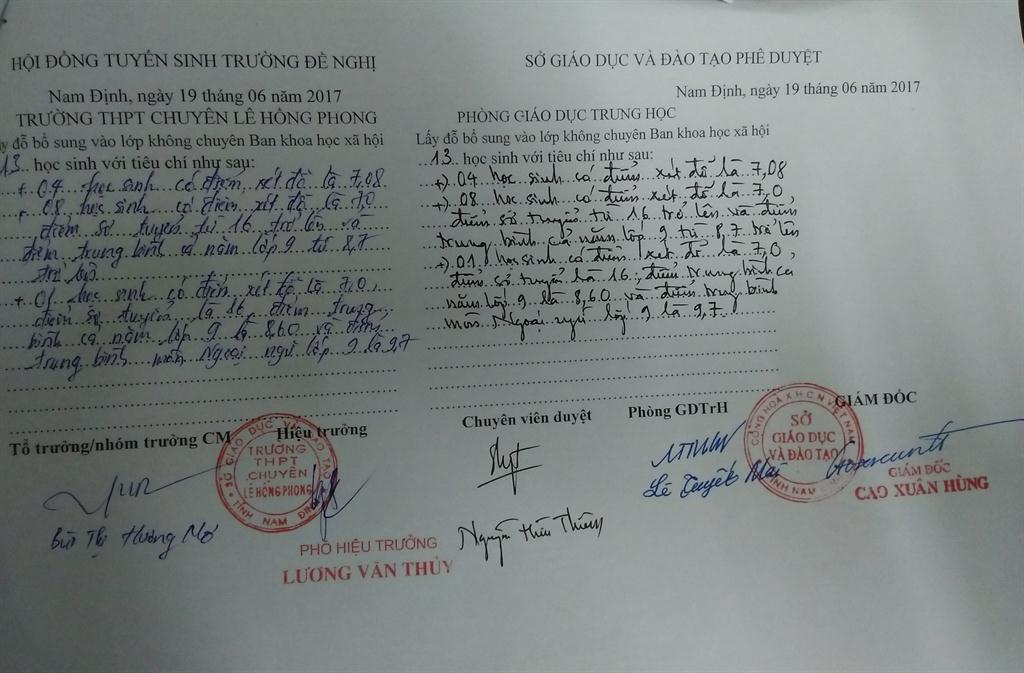 HỘI ĐỒNG TUYỂN SINH TRƯỜNG ĐỀ NGHỊ
Nam Định, ngày 19 tháng 06 năm 2017
TRƯỜNG THPT CHUYÊN LÊ HỒNG PHONG
ấy đỗ bổ sung vào lớp không chuyên Ban khoa học xã hội
13 học sinh với tiêu chí như sau:
+ 04 học sinh có điểm xét đỗ là 7,08
+ 08 học sinh có điểm xét đỗ là 7,0
điểm sơ tuyển từ 16 trở lên và
điểm trung bình cả năm lớp 9 từ 8,7
trở lên
+ 01 học sinh có điểm xét đỗ là 7,0,
điểm sơ tuyển là 16, điểm trung
bình cả năm lớp 9 là 8,60 và điểm
trung bình môn Ngoại ngữ lớp 9 là 9,7
Tổ trưởng/nhóm trưởng CM
Hiệu trưởng
SỞ GIÁO DỤC VÀ ĐÀO TẠO
TỈNH NAM ĐỊNH
TRƯỜNG
THPT
CHUYÊN
LÊ HỒNG PHONG
Bùi Thị Hương Mơ
PHÓ HIỆU TRƯỞNG
LƯƠNG VĂN THỦY
SỞ GIÁO DỤC VÀ ĐÀO TẠO PHÊ DUYỆT
Nam Định, ngày 19 tháng 06 năm 2017
PHÒNG GIÁO DỤC TRUNG HỌC
Lấy đỗ bổ sung vào lớp không chuyên Ban khoa học xã hội
13 học sinh với tiêu chí như sau:
+) 04 học sinh có điểm xét đỗ là 7,08
+) 08 học sinh có điểm xét đỗ là 7,0
điểm sơ tuyển từ 16 trở lên và điểm
trung bình cả năm lớp 9 từ 8,7 trở lên
+) 01 học sinh có điểm xét đỗ là 7,0,
điểm sơ tuyển là 16, điểm trung bình cả
năm lớp 9 là 8,60 và điểm trung bình
môn Ngoại ngữ lớp 9 là 9,7.
Chuyên viên duyệt
Phòng GDTrH
GIÁM ĐỐC
CỘNG HOÀ X.H.C.N VIỆT NAM
SỞ
GIÁO DỤC
VÀ ĐÀO TẠO
TỈNH NAM ĐỊNH
Lê Tuyết Mai
GIÁM ĐỐC
CAO XUÂN HÙNG